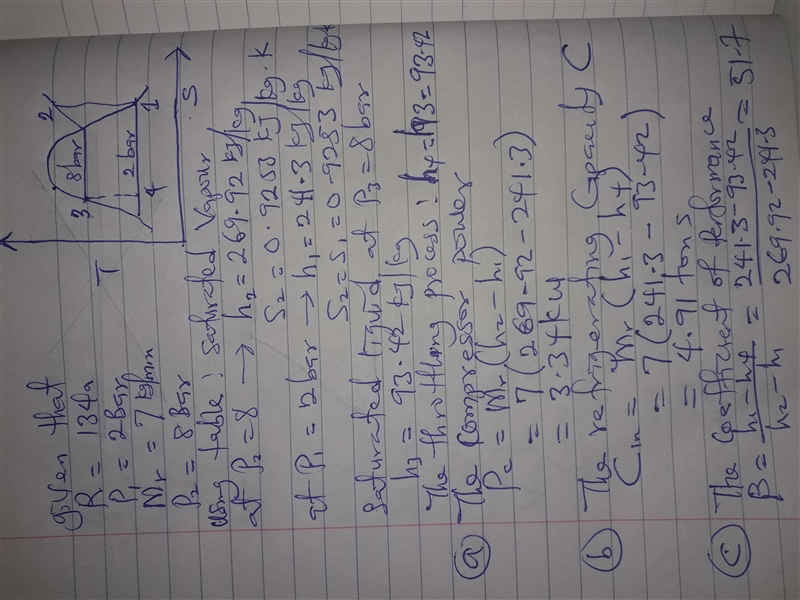 given that
R = 134a
P1 = 2bar
Mr = 7 kg/min
P2 = 8bar
T
3
8bar
2
2 bar
4
1
S
Using table: Saturated Vapour
at P2=8 → h2=269.92 kJ/kg
S2=0.9253 kJ/kg.K
at P1=2bar → h1=241.3 kJ/kg
S2=S1=0.9253 kJ/kgk
Saturated liquid at P3=8bar
h3 = 93.42 kJ/kg
The throttling process: h4=h3=93.42
(a) The Compressor power
Pc = Mr (h2-h1)
= 7(269.92-241.3)
= 3.34kw
(b) The refrigerating Capacity C
Cin = Mr (h1-h4)
= 7(241.3 - 93.42)
= 4.91 tons
(c) The Coefficient of Performance
β = h1-h4 / h2-h1 = 241.3-93.42 / 269.92-241.3 = 51.7